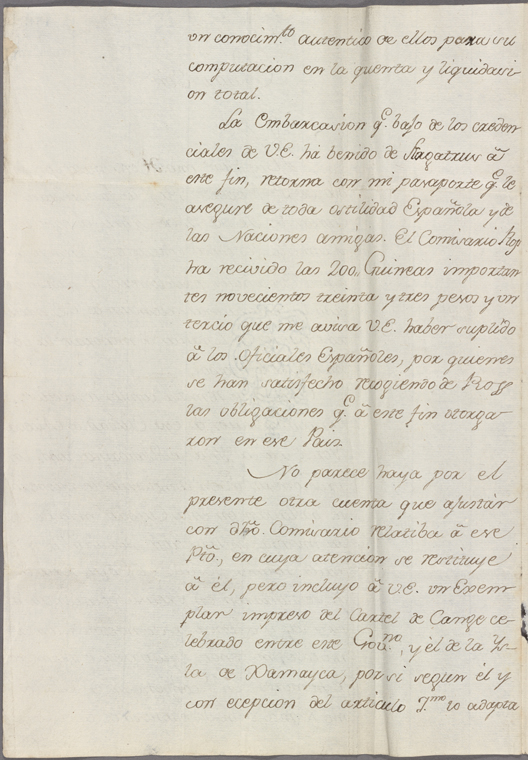 un conocim.to autentico de ellos para su
computacion en la quenta y liquidaci-
on total.
La Embarcasion q.e bajo de los creden-
ciales de V.E. há benido de á
este fin, retorna con mi pasaporte q.e le
asegure de toda ostilidad Española y de
las Naciones amigas. El Comisario Ross
ha recivido las 200,, Guineas importan-
tes novecientos treinta y tres pesos y un
tercio que me avisa V.E. haber suplido
á los Oficiales Españoles, por quienes
se han satisfecho recogiendo de Ross
las obligaciones q.e á este fin otorga-
ron en ese Pais.
No parece haya por el
presente otra cuenta que ajustár
con dho. Comisario relatiba á ese
Pto., en cuya atencion se restituye
á él, pero incluyo á V.E. un Exem-
plar impreso del Cartel de Cange ce-
lebrado entre este Gov.no, y él de la Ys-
la de Xamayca, por si segun él y
con ecepcion del articulo 7.mo lo adapta